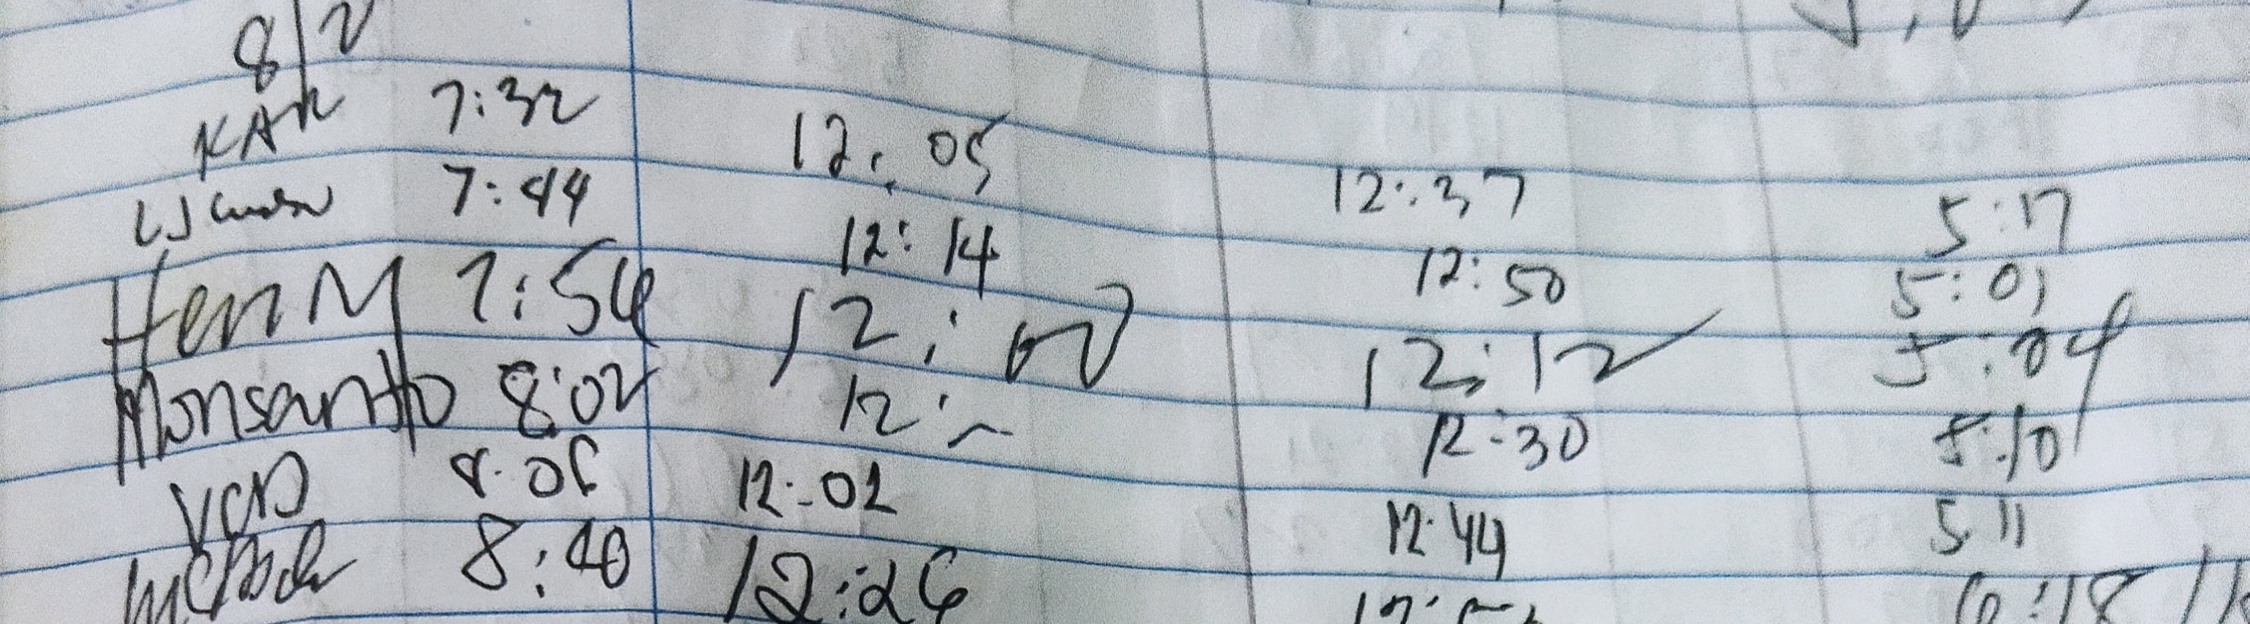 8/2
KAR 7:32 12:05 12:37 5:17
7:44 12:14 12:50 5:01
HenM 7:54 12:00 12:12 5:04
Monsanto 8:02 12: 12:30 5:10
VCD 8:06 12:02 12:44 5 11
8:40 12:26 6:18